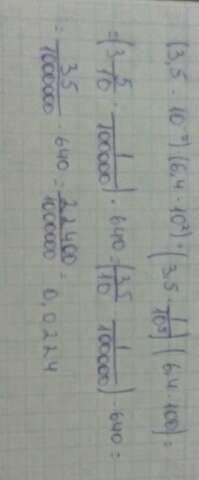 (3,5 · 10⁻⁵)(6,4 · 10²) = (3,5 · 1/10⁵)(6,4 · 100) =
= (3 5/10 · 1/100000) · 640 = (35/10 · 1/100000) · 640 =
= 35/1000000 · 640 = 22400/1000000 = 0,0224